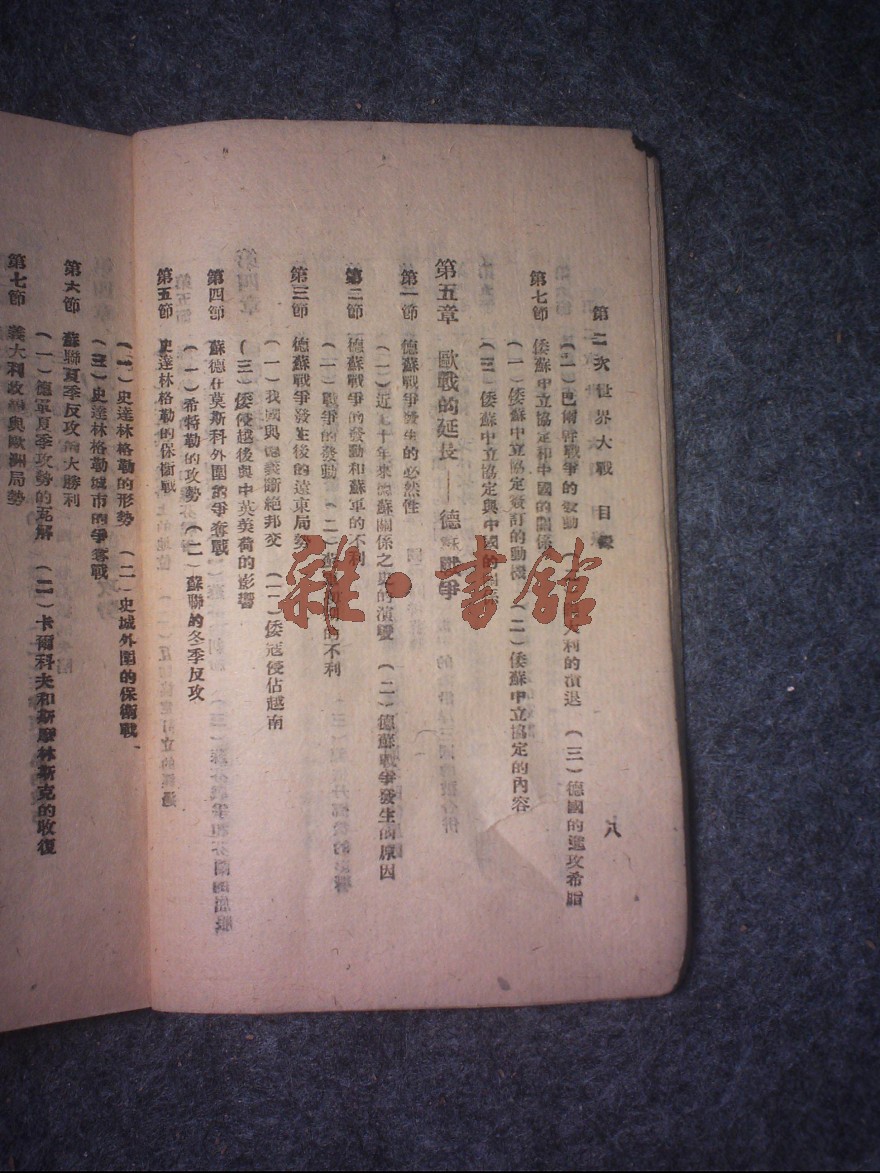 第二次世界大戰 目錄
八
(一)巴爾幹戰爭的發動 大利的潰退 (三)德國的進攻希臘
第七節 倭蘇中立協定和中國的關係
(一)倭蘇中立協定簽訂的動機 (二)倭蘇中立協定的內容
(三)倭蘇中立協定與中國的
第五章 歐戰的延長——德蘇戰爭
第一節 德蘇戰爭發生的必然性
(一)近七十年來德蘇關係之史的演變 (二)德蘇戰爭發生的原因
第二節 德蘇戰爭的發動和蘇軍的不利
(一)戰爭的發動 (二)蘇 的不利
第三節 德蘇戰爭發生後的遠東局勢
(一)我國與德義斷絕邦交 (二)倭寇侵佔越南
(三)倭侵越後與中英美荷的影響
第四節 蘇德在莫斯科外圍的爭奪戰
(一)希特勒的攻勢 (二)蘇聯的冬季反攻
第五節 史達林格勒的保衛戰
(一)史達林格勒的形勢 (二)史城外圍的保衛戰
(三)史達林格勒城市的爭奪戰
第六節 蘇聯夏季反攻的大勝利
(一)德軍夏季攻勢的瓦解 (二)卡爾科夫和斯摩林斯克的收復
第七節 義大利政變與歐洲局勢
雜·書館